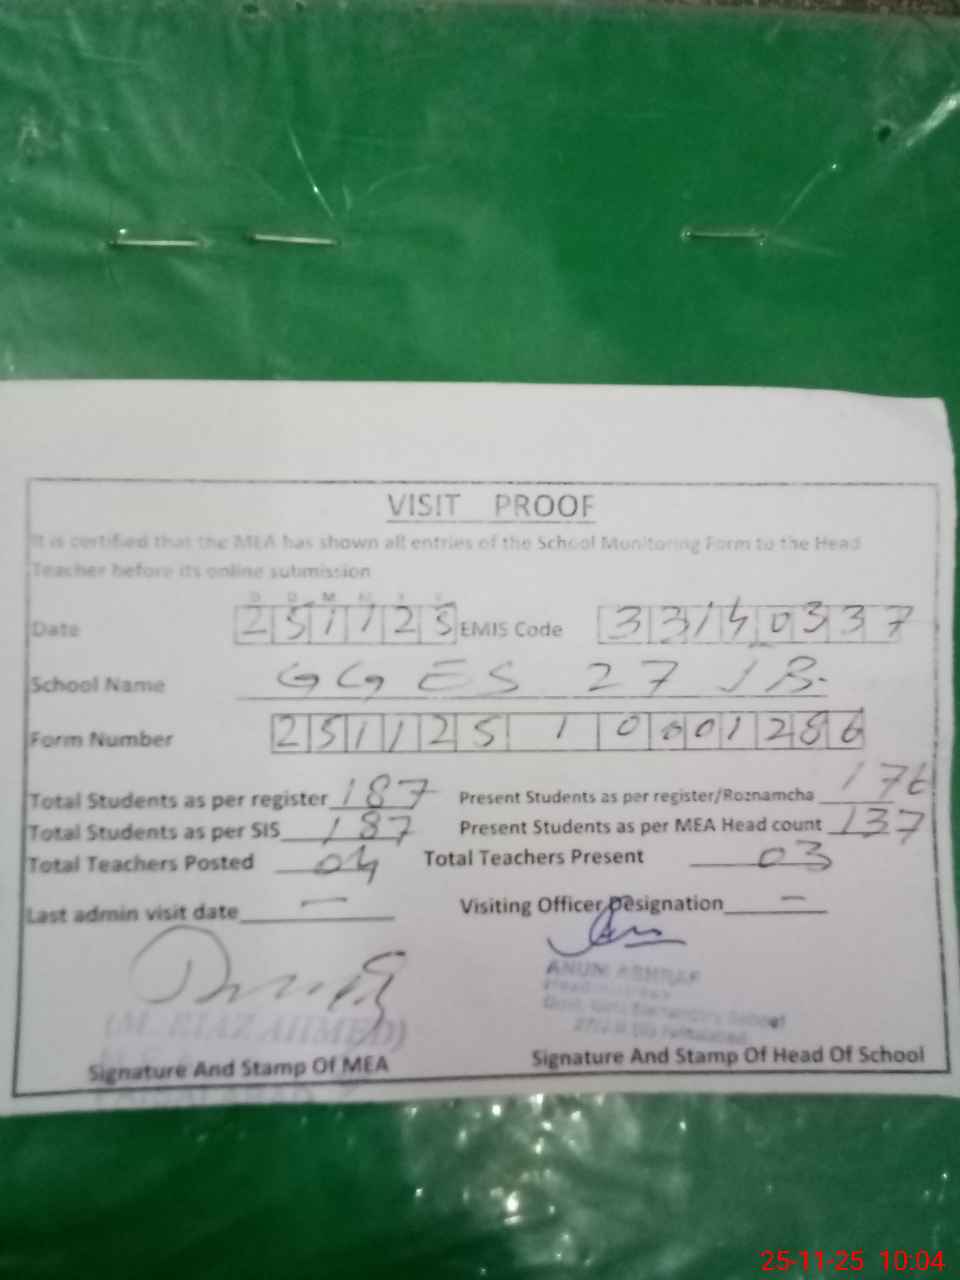 VISIT PROOF
It is certified that the MEA has shown all entries of the School Monitoring Form to the Head
Teacher before its online submission
D D M M Y Y
Date 251125 EMIS Code 33140337
School Name GGES 27 JB.
Form Number 251125 1 0001286
Total Students as per register 187 Present Students as per register/Roznamcha 176
Total Students as per SIS 187 Present Students as per MEA Head count 137
Total Teachers Posted 04 Total Teachers Present 03
Last admin visit date — Visiting Officer Designation —
ANUM ASHRAF
Headmistress
Govt. Girls Elementary School
(M. RIAZ AHMED)
Signature And Stamp Of MEA Signature And Stamp Of Head Of School
25-11-25 10:04